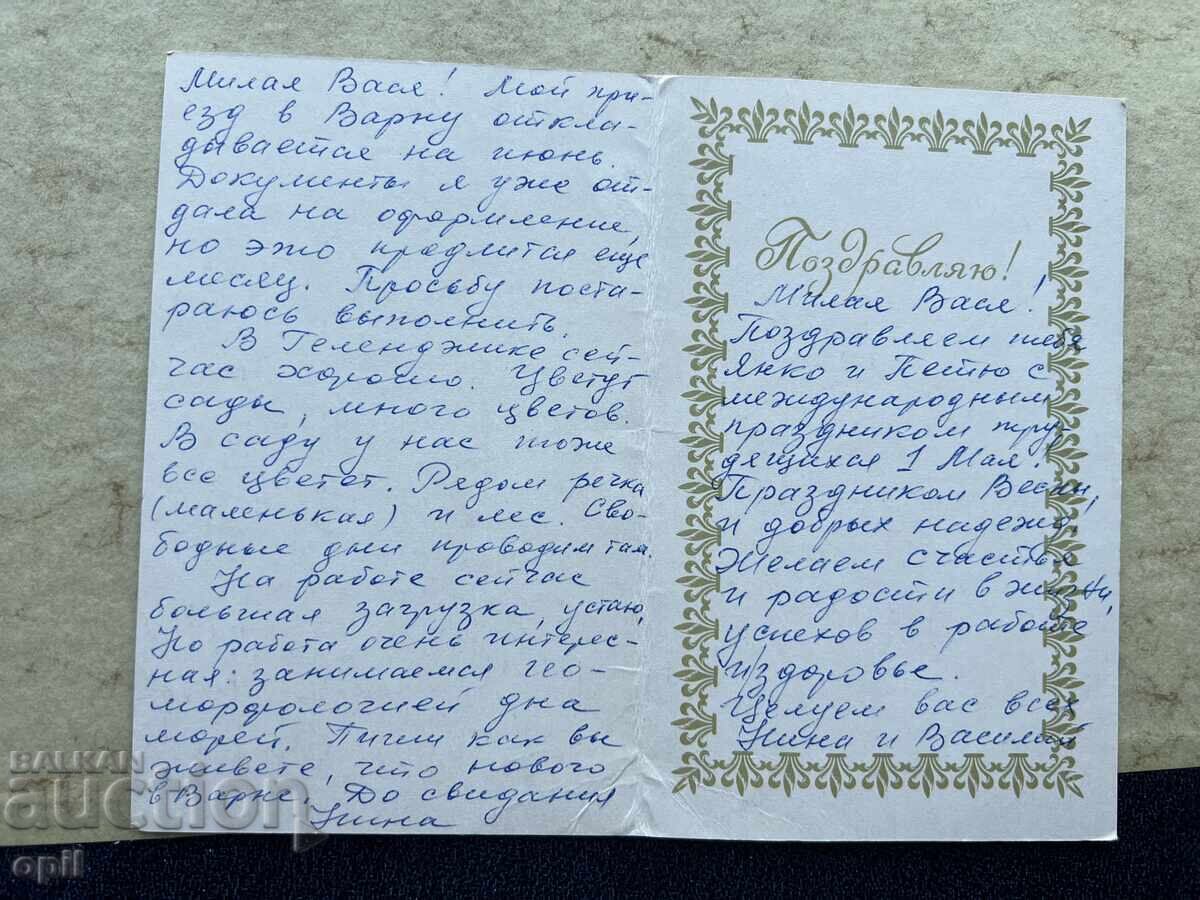 Милая Вася! Мой при-
езд в Варну откла-
дывается на июнь.
Документы я уже от-
дала на оформление,
но это продлится еще
месяц. Просьбу поста-
раюсь выполнить.
В Геленджике сей-
час хорошо. Цветут
сады, много цветов.
В саду у нас тоже
все цветет. Рядом речка
(маленькая) и лес. Сво-
бодные дни проводим там.
На работе сейчас
большая загрузка, устаю,
Но работа очень интерес-
ная: занимаемся гео-
морфологией дна
морей. Пиши как вы
живете, что нового
в Варне. До свидания
Нина
Поздравляю!
Милая Вася!
Поздравляем тебя
Янко и Петю с
международным
праздником тру-
дящихся 1 Мая!
Праздником Весны,
и добрых надежд.
Желаем счастья
и радости в жизни,
успехов в работе
и здоровье.
Целуем вас всех
Нина и Василий
BALKAN
auction
opil